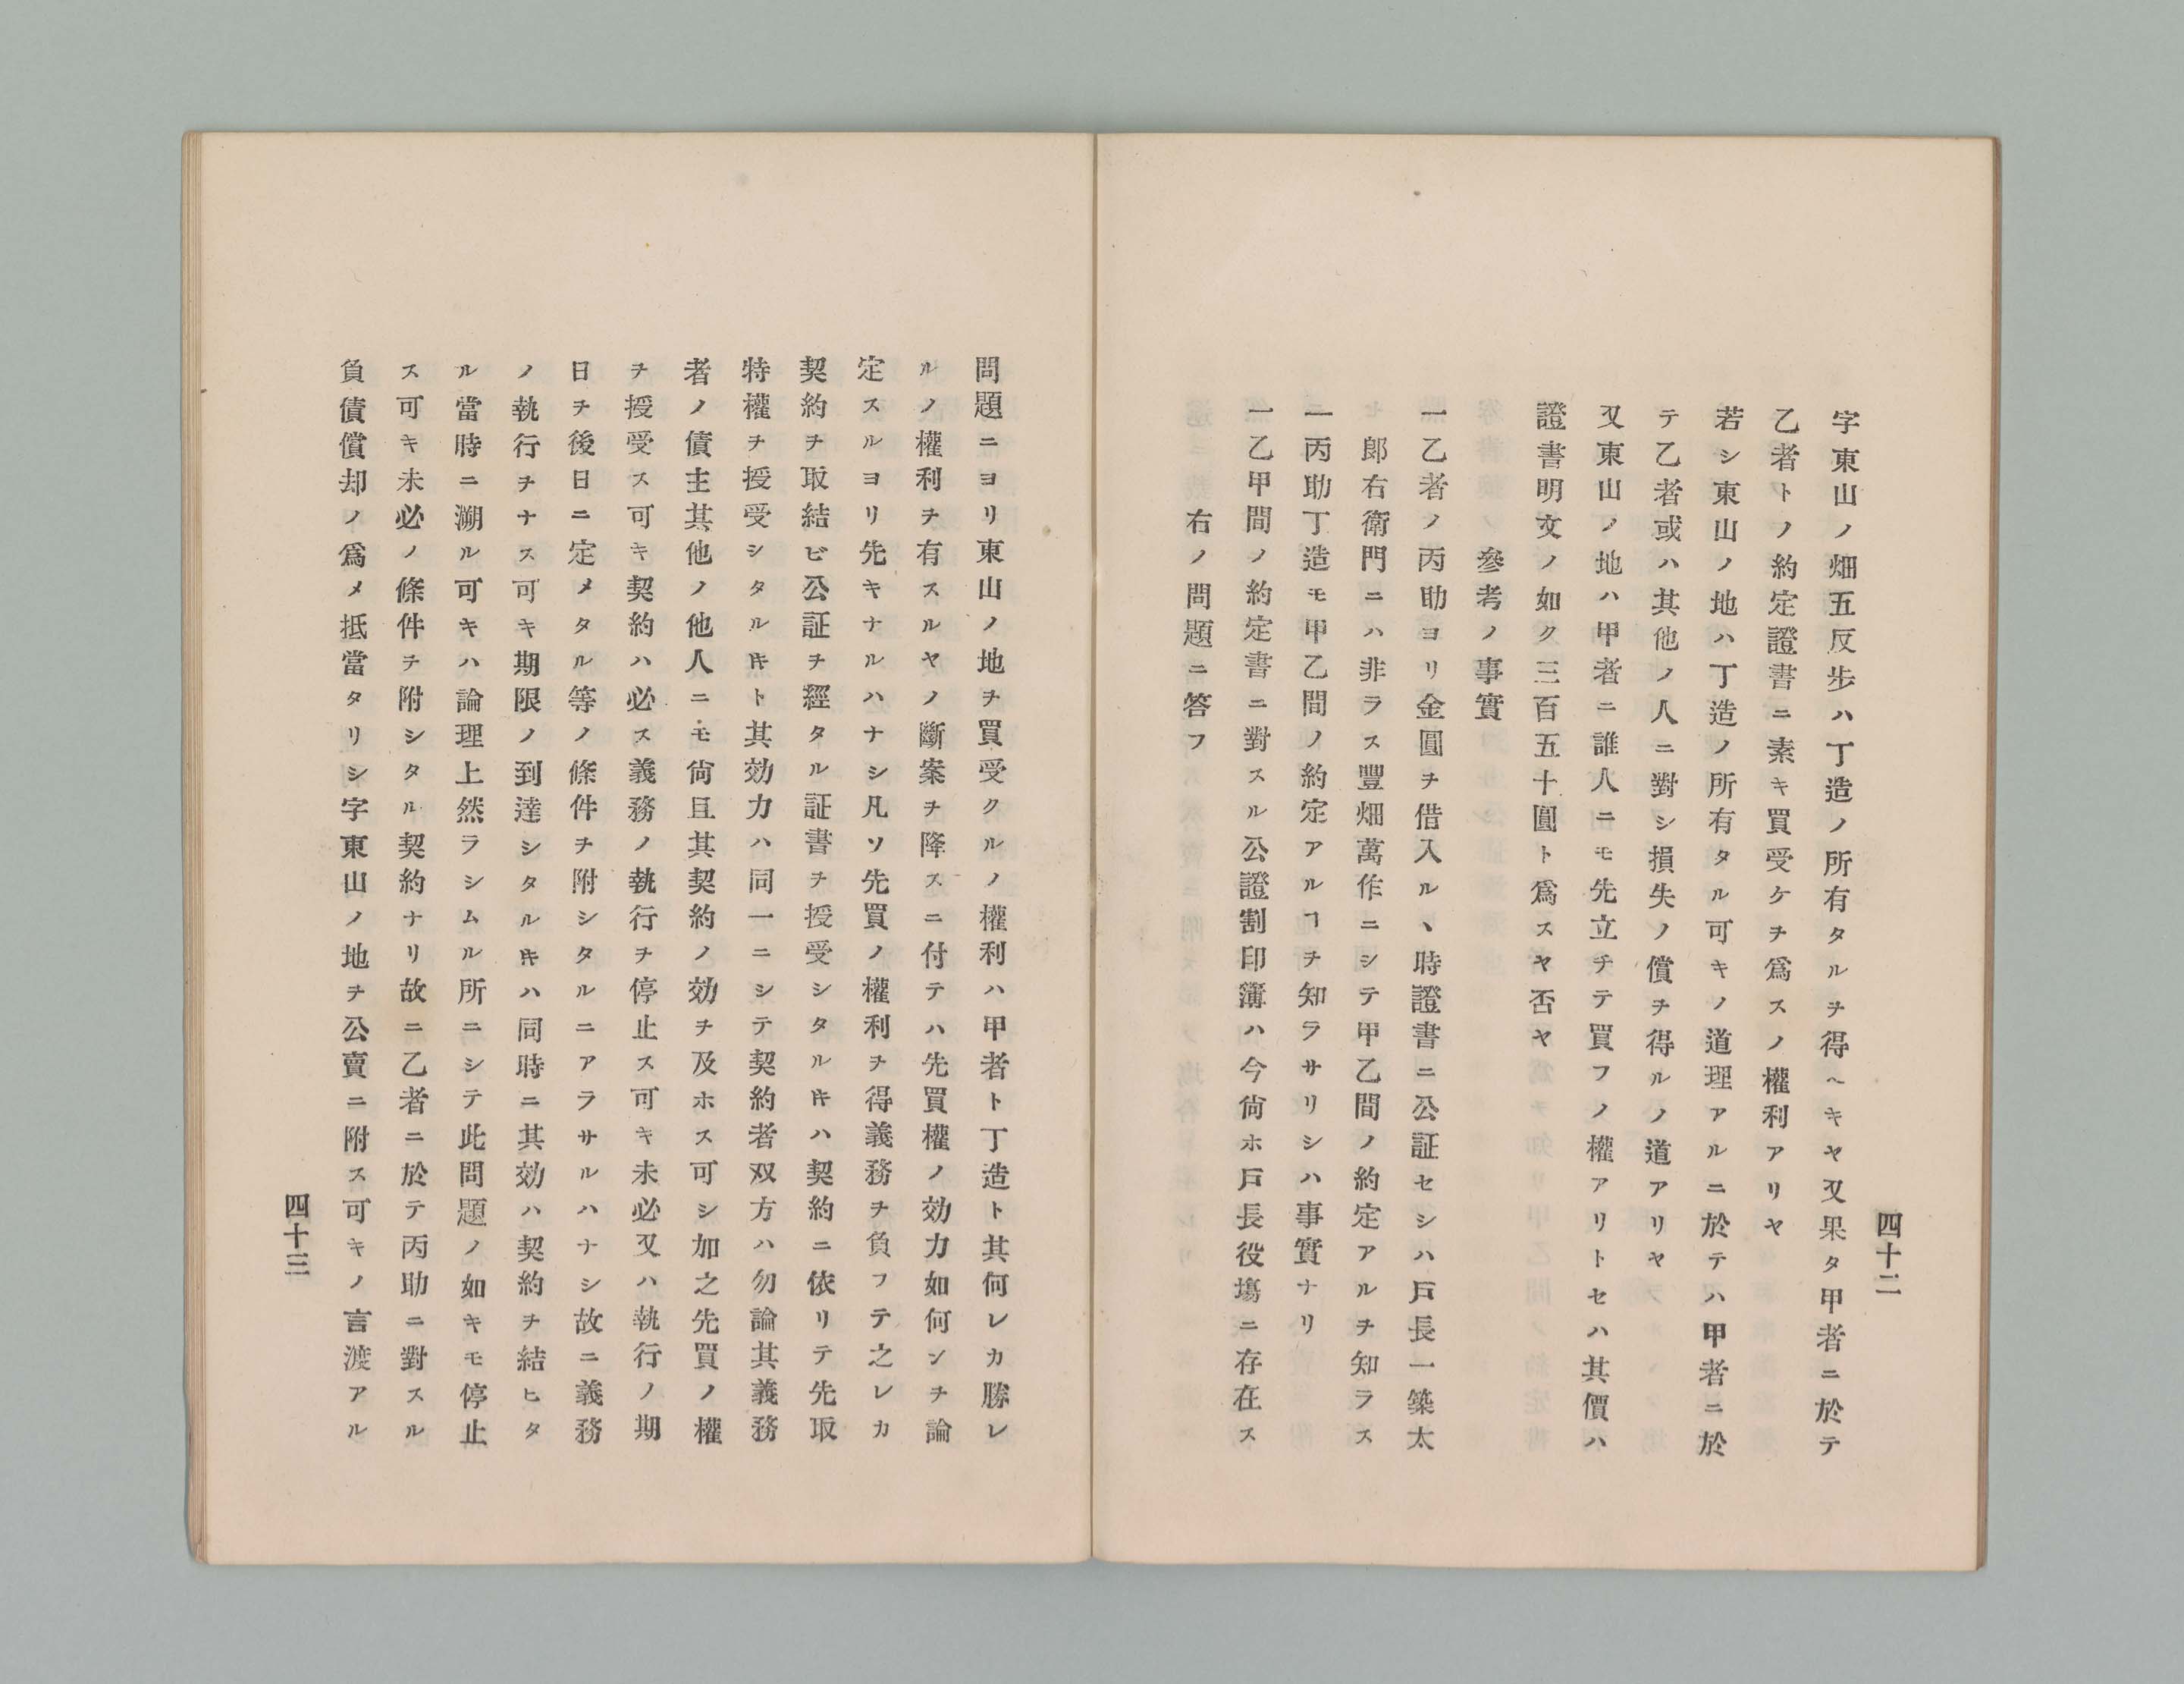 字東山ノ畑五反歩ハ丁造ノ所有タルヲ得ヘキヤ又果タ甲者ニ於テ
乙者トノ約定證書ニ素キ買受ケヲ爲スノ權利アリヤ
若シ東山ノ地ハ丁造ノ所有タル可キノ道理アルニ於テハ甲者ニ於
テ乙者或ハ其他ノ人ニ對シ損失ノ償ヲ得ルノ道アリヤ
又東山ノ地ハ甲者ニ誰人ニモ先立チテ買フノ權アリトセハ其價ハ
證書明文ノ如ク三百五十圓ト爲スヤ否ヤ
參考ノ事實
一乙者ノ丙助ヨリ金圓ヲ借入ルヽ時證書ニ公証セシハ戸長一築太
郎右衛門ニハ非ラス豐畑萬作ニシテ甲乙間ノ約定アルヲ知ラス
一丙助丁造モ甲乙間ノ約定アルヿヲ知ラサリシハ事實ナリ
一乙甲間ノ約定書ニ對スル公證割印簿ハ今尙ホ戸長役塲ニ存在ス
右ノ問題ニ答フ
四十二
問題ニヨリ東山ノ地ヲ買受クルノ權利ハ甲者ト丁造ト其何レカ勝レ
ルノ權利ヲ有スルヤノ斷案ヲ降スニ付テハ先買權ノ効力如何ンヲ論
定スルヨリ先キナルハナシ凡ソ先買ノ權利ヲ得義務ヲ負フテ之レカ
契約ヲ取結ビ公証ヲ經タル証書ヲ授受シタル𪜈ハ契約ニ依リテ先取
特權ヲ授受シタル𪜈ト其効力ハ同一ニシテ契約者双方ハ勿論其義務
者ノ債主其他ノ他人ニモ尙且其契約ノ効ヲ及ホス可シ加之先買ノ權
ヲ授受ス可キ契約ハ必ス義務ノ執行ヲ停止ス可キ未必又ハ執行ノ期
日ヲ後日ニ定メタル等ノ條件ヲ附シタルニアラサルハナシ故ニ義務
ノ執行ヲナス可キ期限ノ到達シタル𪜈ハ同時ニ其効ハ契約ヲ結ヒタ
ル當時ニ溯ル可キハ論理上然ラシムル所ニシテ此問題ノ如キモ停止
ス可キ未必ノ條件ヲ附シタル契約ナリ故ニ乙者ニ於テ丙助ニ對スル
負債償却ノ爲メ抵當タリシ字東山ノ地ヲ公賣ニ附ス可キノ言渡アル
四十三